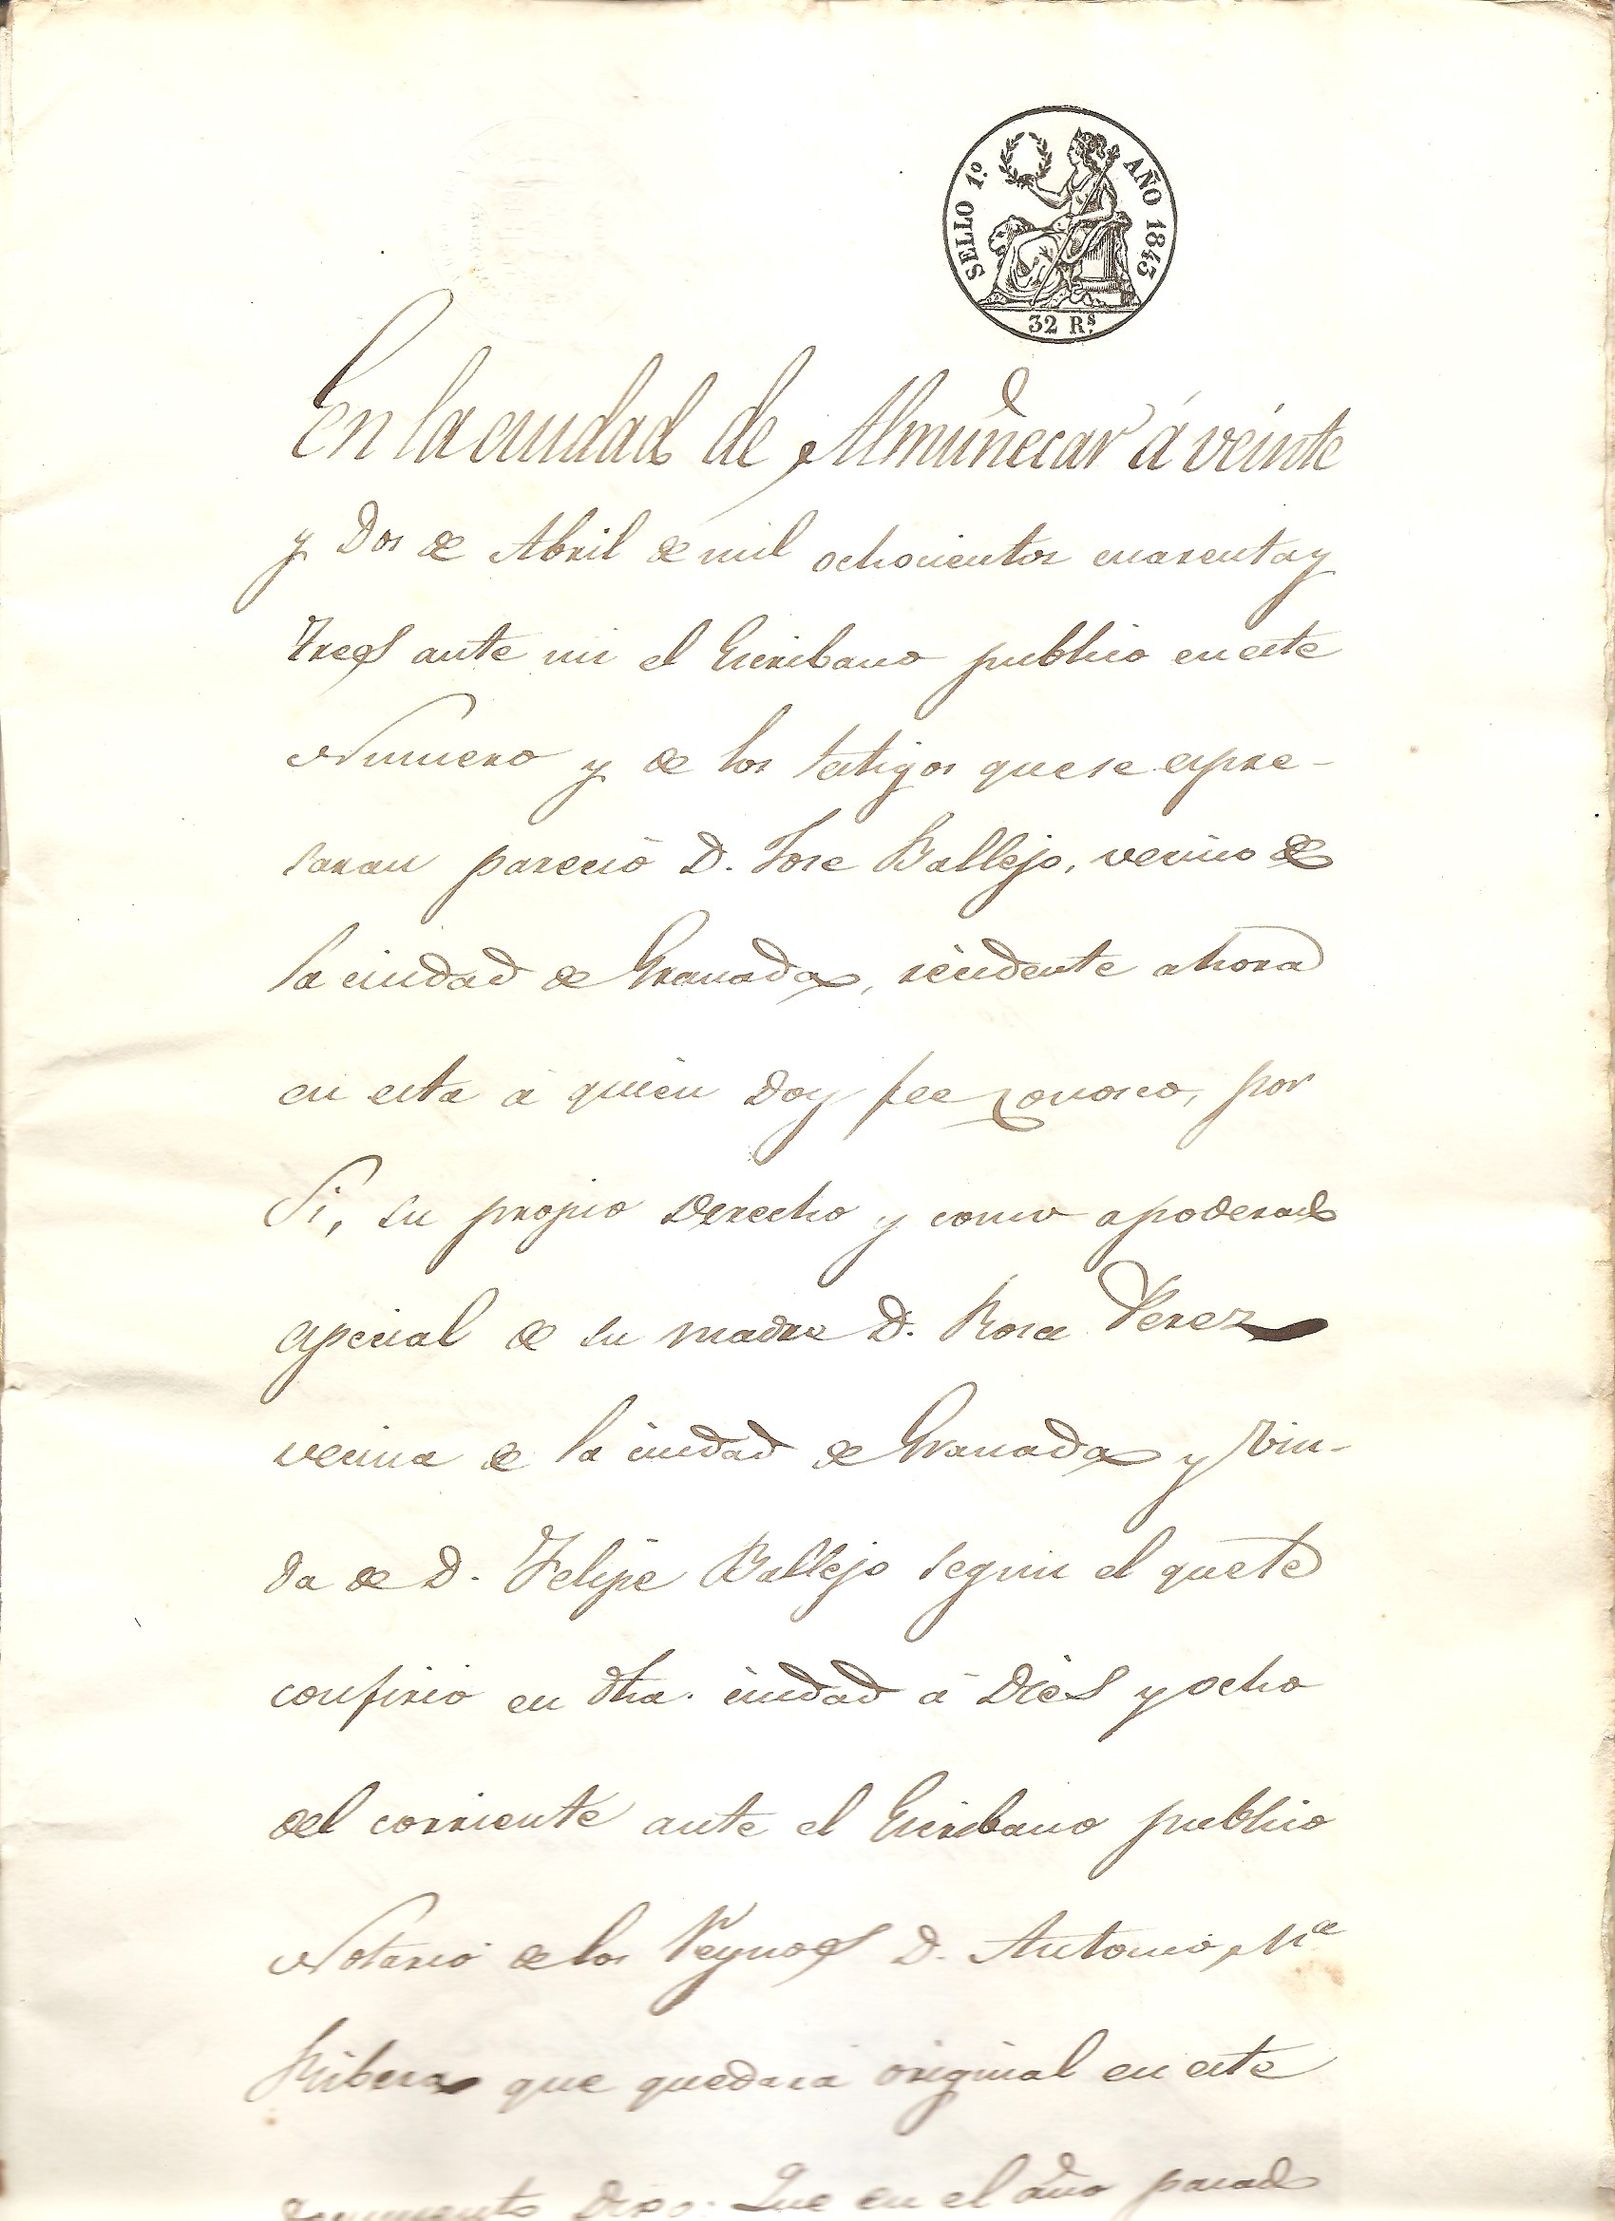 SELLO 1º AÑO 1843
32 Rˢ
En la ciudad de Almuñecar á veinte
y Dos de Abril de mil ochocientos cuarenta y
Tres ante mi el Escribano publico en este
Numero y de los testigos que se espre-
saran pareció D. Jose Ballejo, vecino de
la ciudad de Granada, recidente ahora
en esta á quien doy fee conosco, por
Si, su propio derecho y como apoderado
especial de su madre D. Rosa Perez
vecina de la ciudad de Granada y Viu-
da de D. Felipe Ballejo segun el que te
confirio en dha. ciudad á Dies y ocho
del corriente ante el Escribano publico
Notario de los Reynos D. Antonio Mª
Ribera que quedará original en este
documento Dijo: Que en el año pasado